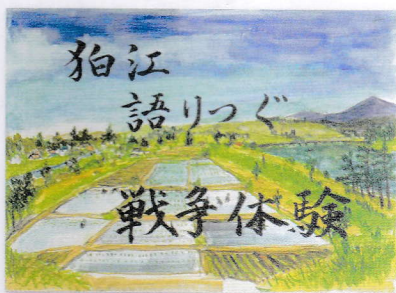 狛江
語りつぐ
戦争体験